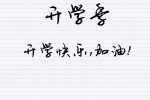 开学季
开学快乐,加油!